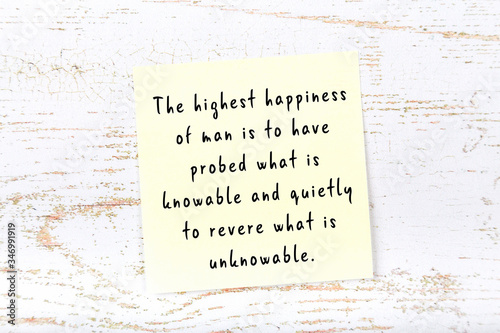 The highest happiness
of man is to have
probed what is
knowable and quietly
to revere what is
unknowable.
Adobe Stock | #346991919